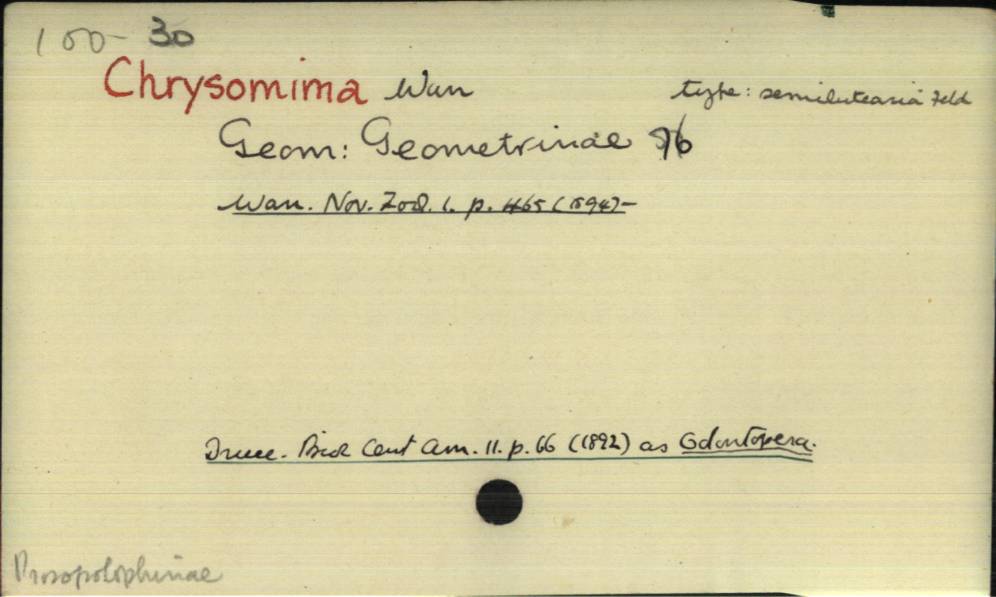 100- 30
Chrysomima Warr type: semilutearia Feld
Geom: Geometrinae 96
Warr. Nov. Zool. 1. p. 465 (1894)-
Druce. Biol Cent Am. 11. p. 66 (1892) as Odontopera.
Prosopolophinae